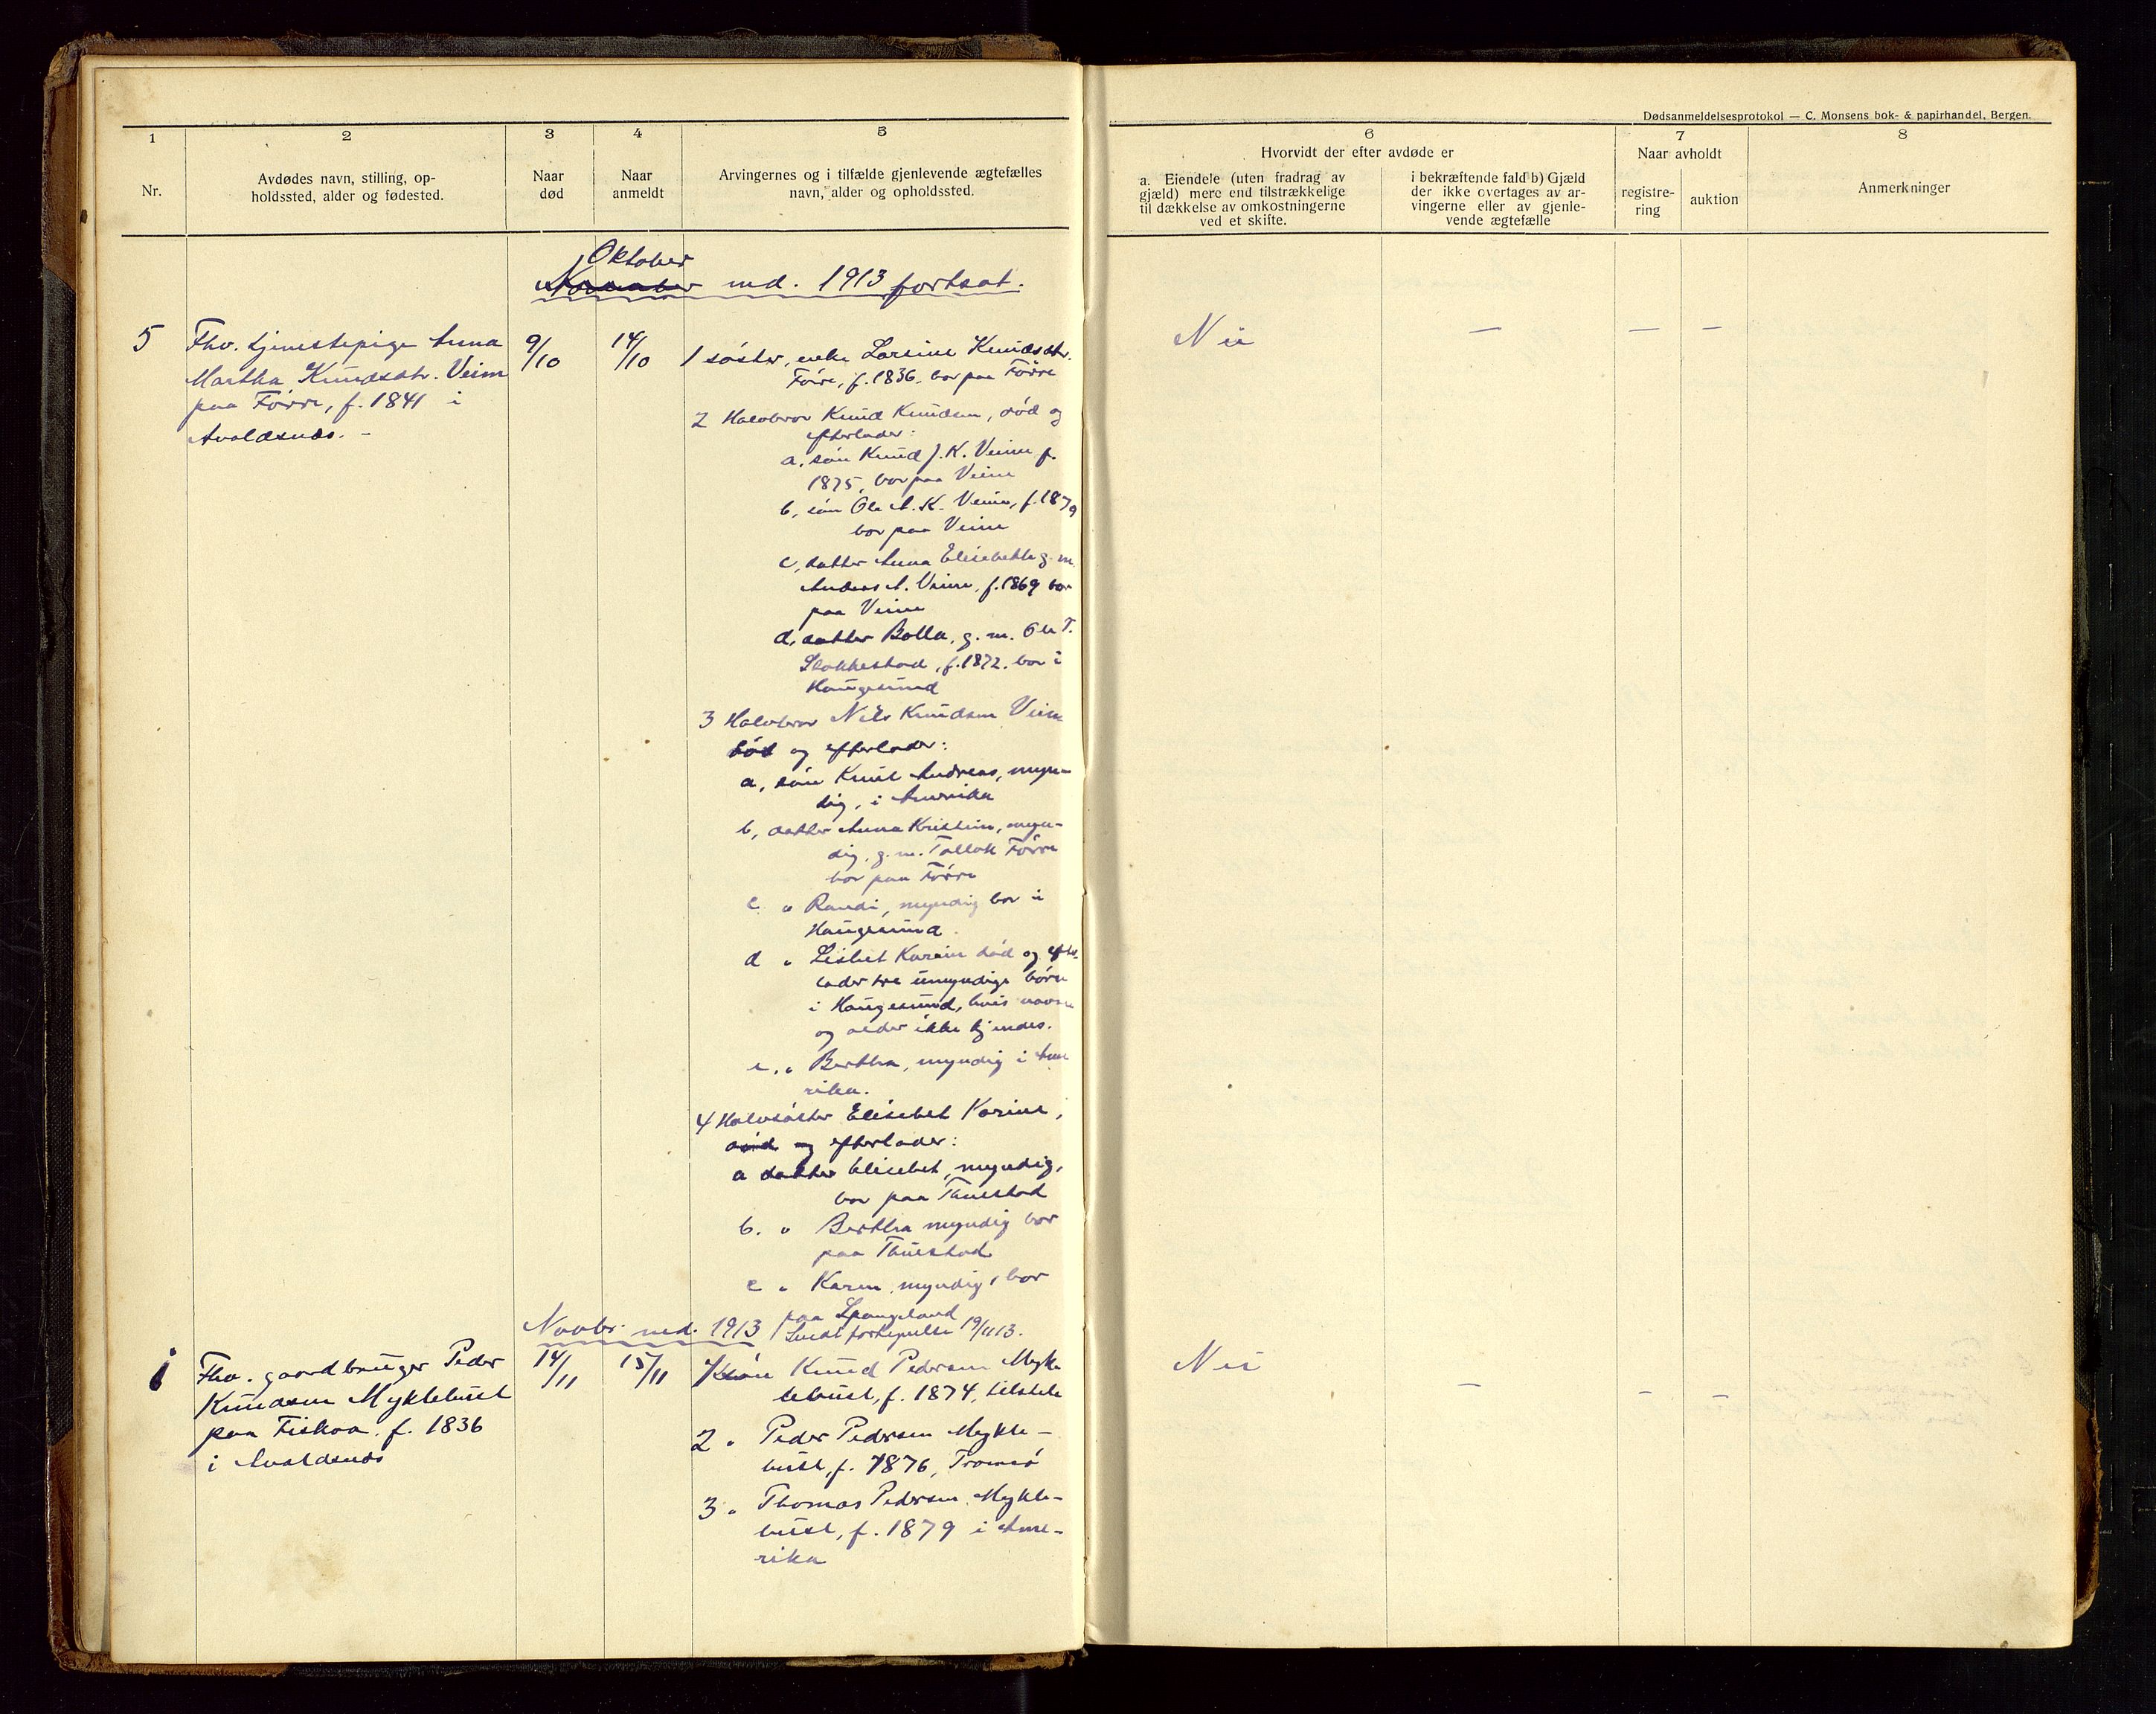 Dødsanmeldelsesprotokol — C. Monsens bok- & papirhandel, Bergen.
1
2
3
4
5
6
7
8
Nr.
Avdødes navn, stilling, op-
holdssted, alder og fødested.
Naar
død
Naar
anmeldt
Arvingernes og i tilfælde gjenlevende ægtefælles
navn, alder og opholdssted.
Hvorvidt der efter avdøde er
a. Eiendele (uten fradrag av
gjæld) mere end tilstrækkelige
til dækkelse av omkostningerne
ved et skifte.
i bekræftende fald b) Gjæld
der ikke overtages av ar-
vingerne eller av gjenle-
vende ægtefælle
Naar avholdt
registre-
ring
auktion
Anmerkninger
Oktober
November md. 1913 fortsat.
5
Fhv. tjenestepige Anna
Martha Knudsdtr. Veim
paa Førre, f. 1841 i
Avaldsnes. -
9/10
14/10
1 søster, enke Larsine Knudsdtr.
Førre, f. 1836, bor paa Førre
2 Halvbror Knud Knudsen, død og
efterlader:
a, søn Knud J. K. Veim f.
1875, bor paa Veim
b, søn Ole A. K. Veim, f. 1879
bor paa Veim
c, datter Anna Elisabeth g. m.
Anders A. Veim, f. 1869 bor
paa Veim
d, datter Bolla, g. m. Ole T.
Stokkestad, f. 1872, bor i
Haugesund
3 Halvbror Nils Knudsen Veim
død og efterlader:
a, søn Knut Andreas, myn-
dig, i Amerika
b, datter Anna Kristine, myn-
dig, g. m. Tollak Førre
bor paa Førre
c " Randi, myndig bor i
Haugesund
d " Lisbet Karin død og efter-
lader tre umyndige børn
i Haugesund, hvis navne
og alder ikke kjendes.
e, " Bertha, myndig i Ame
rika.
4 Halvsøster Elisabet Karine,
død og efterlader:
a datter Elisebet, myndig,
bor paa Tuestad
b. " Bertha myndig bor
paa Tuestad
c " Karen, myndig, bor
paa Spangeland
Novbr. md. 1913
19/11 13.
1
Fhv. gaardbruger Peder
Knudsen Myklebust
paa Fiskaa, f. 1836
i Avaldsnes
14/11
15/11
1 søn Knud Pedersen Myk
lebust, f. 1874, tilstede
2 " Peder Pedersen Mykle-
bust, f. 1876, Tromsø
3 " Thomas Pedersen Mykle-
bust, f. 1879 i Ame-
rika
Nei
—
—
—
Nei
—
-
-